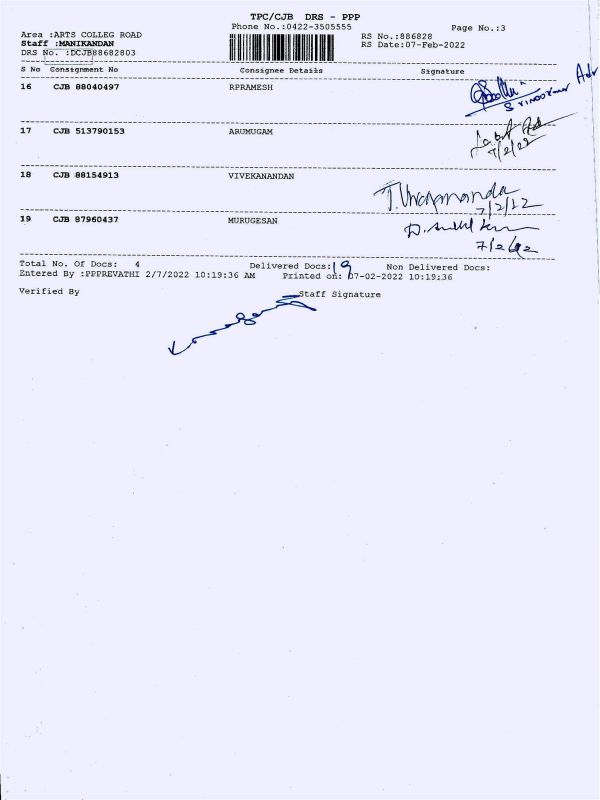 TPC/CJB DRS - PPP
Phone No.:0422-3505555
Page No.:3
Area :ARTS COLLEG ROAD
RS No.:886828
Staff :MANIKANDAN
RS Date:07-Feb-2022
DRS No. :DCJB88682803
S No Consignment No Consignee Details Signature
16 CJB 88040497 RPRAMESH
17 CJB 513790153 ARUMUGAM
7/2/22
18 CJB 88154913 VIVEKANANDAN
7/2/22
19 CJB 87960437 MURUGESAN
7/2/22
Total No. Of Docs: 4 Delivered Docs: 19 Non Delivered Docs:
Entered By :PPPREVATHI 2/7/2022 10:19:36 AM Printed on: 07-02-2022 10:19:36
Verified By Staff Signature